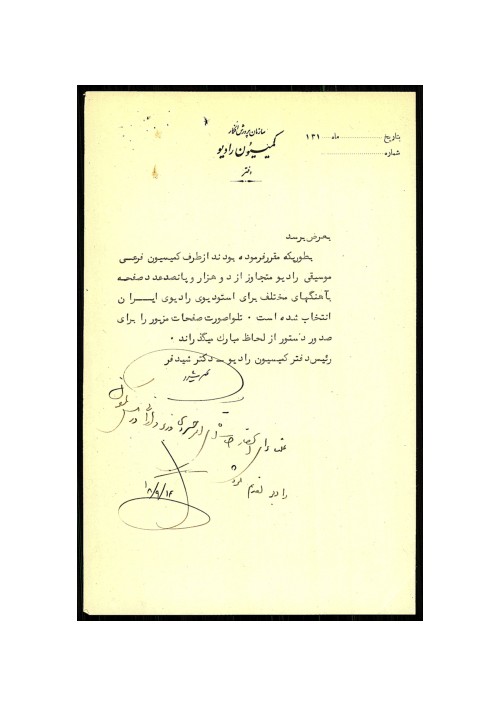 سازمان پرورش افکار
کمیسیون رادیو
دفتر
بتاریخ ............ ماه ..... ۱۳۱
شماره ............
بعرض برسد
بطوریکه مقرر فرموده بودند از طرف کمیسیون فرعی
موسیقی رادیو متجاوز از دو هزار و پانصد عدد صفحه
بآهنگهای مختلف برای استودیوی رادیوی ایـــران
انتخاب شده است ۰ تلواصورت صفحات مزبور را برای
صدور دستور از لحاظ مبارک میگذراند ۰
رئیس دفتر کمیسیون رادیو ــ دکتر شیدفر
رادیو تقدیم شود
۱۸/۹/۱۴